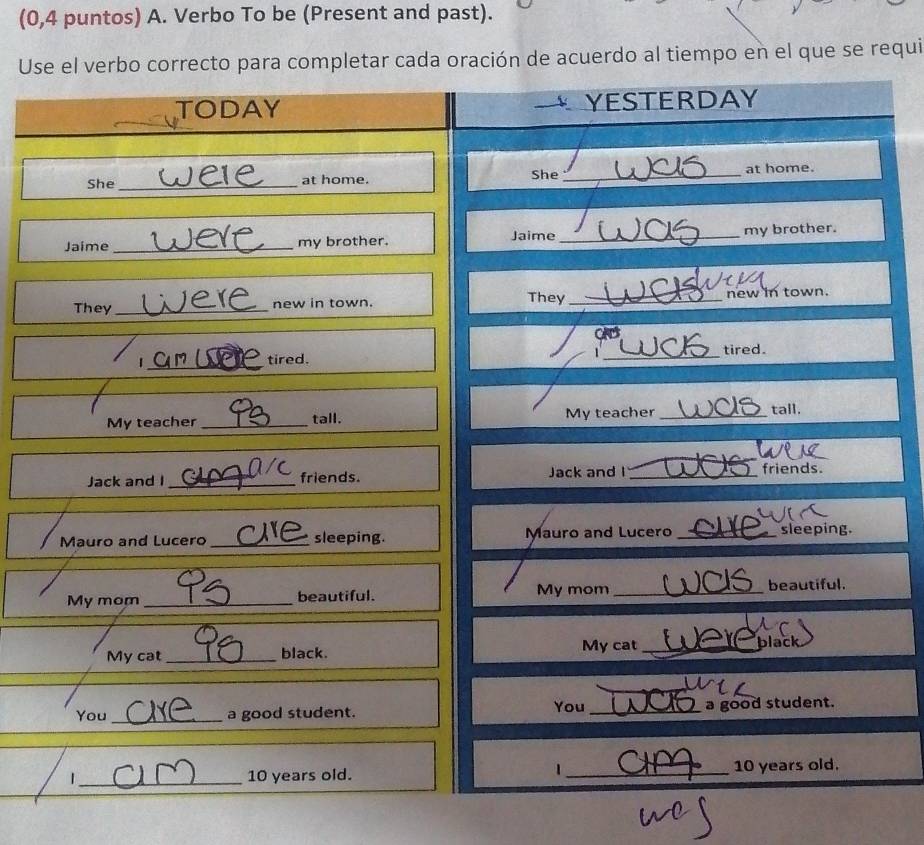 (0,4 puntos) A. Verbo To be (Present and past).
Use el verbo correcto para completar cada oración de acuerdo al tiempo en el que se requi
TODAY
YESTERDAY
She were at home.
She was at home.
Jaime were my brother.
Jaime was my brother.
They were new in town.
They was were new in town.
I am were tired.
I was tired.
My teacher is tall.
My teacher was tall.
Jack and I am are friends.
Jack and I was were friends.
Mauro and Lucero are sleeping.
Mauro and Lucero are were sleeping.
My mom is beautiful.
My mom was beautiful.
My cat is black.
My cat were was black
You are a good student.
You was were a good student.
I am 10 years old.
I am 10 years old.
was